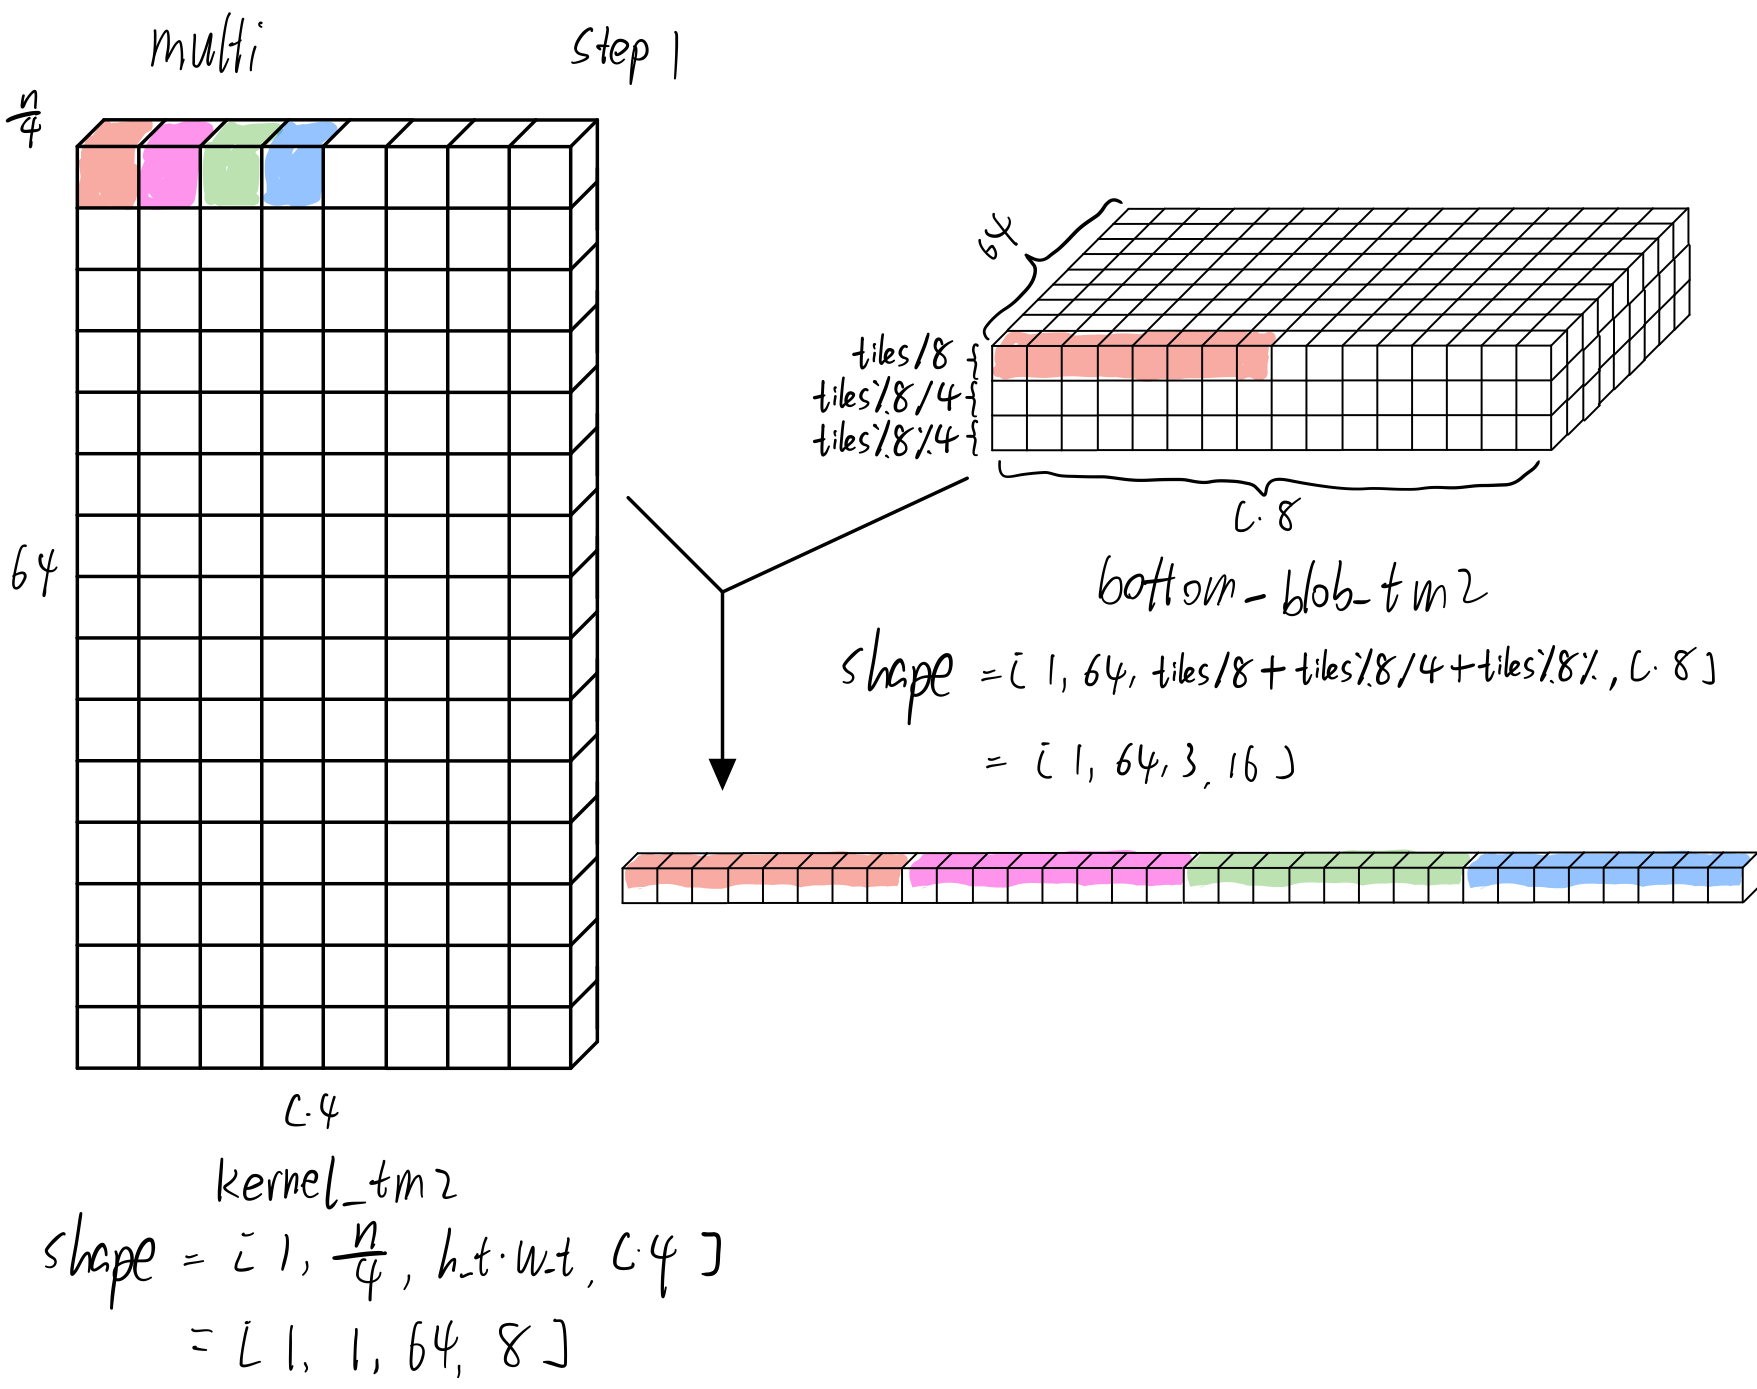 multi
step 1
n/4
64
c·4
kernel_tm2
shape = [ 1, n/4, h_t·w_t, c·4 ]
= [ 1, 1, 64, 8 ]
64
tiles/8 {
tiles%8/4 {
tiles%8%4 {
c·8
bottom_blob_tm2
shape = [ 1, 64, tiles/8 + tiles%8/4 + tiles%8%, c·8 ]
= [ 1, 64, 3, 16 ]